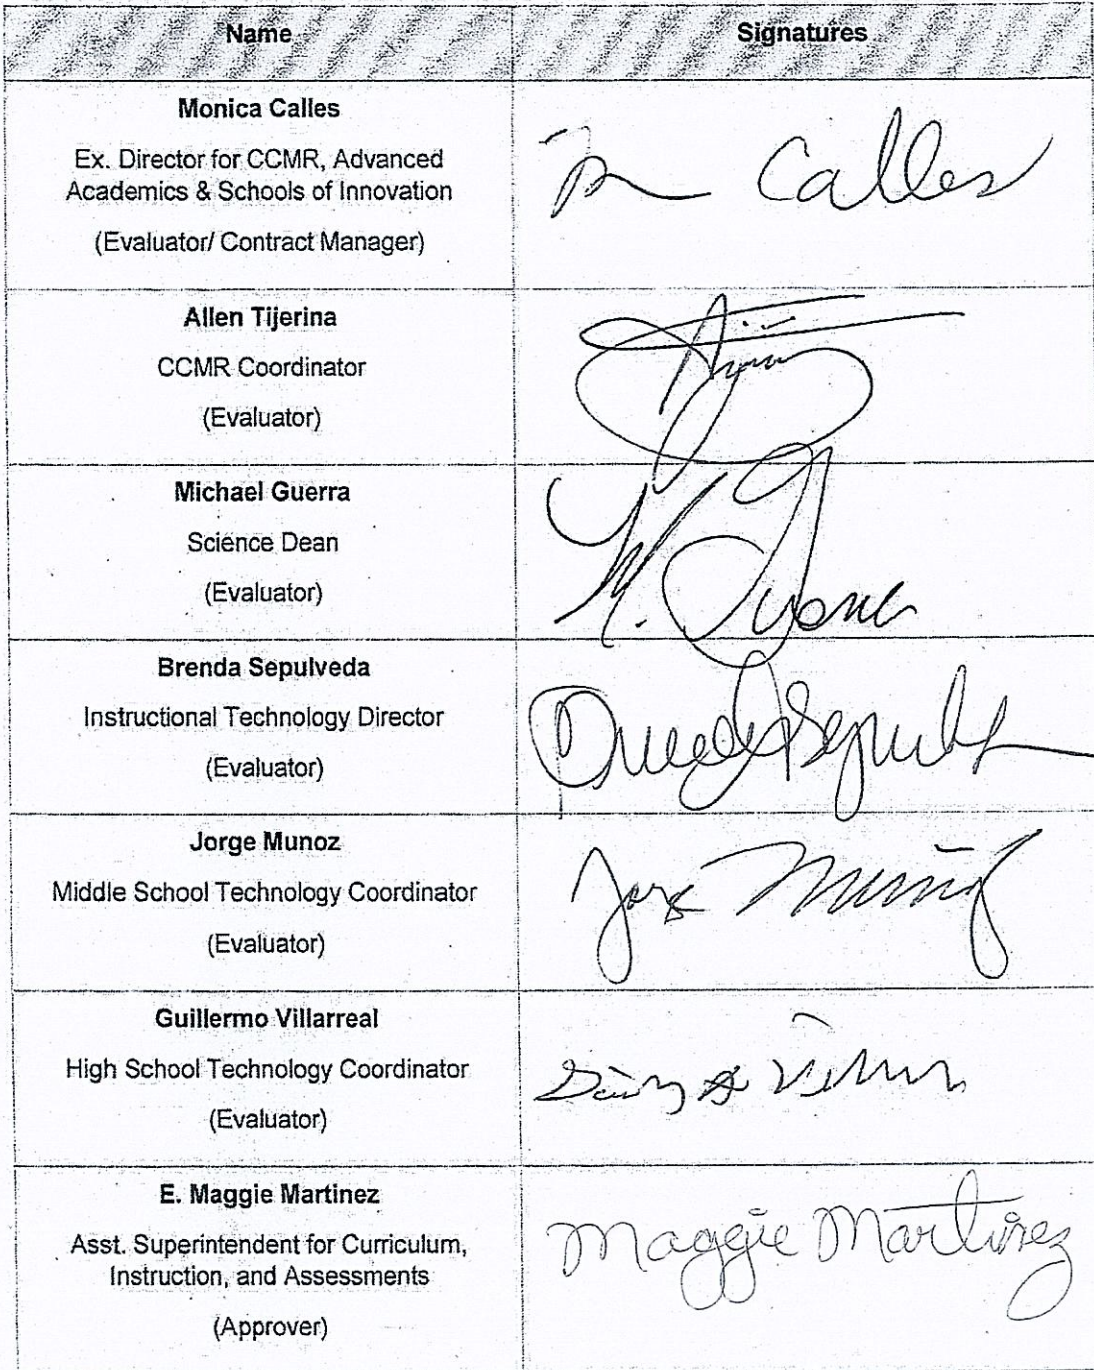 Name Signatures
Monica Calles
Ex. Director for CCMR, Advanced
Academics & Schools of Innovation
(Evaluator/ Contract Manager)
m Calles
Allen Tijerina
CCMR Coordinator
(Evaluator)
Michael Guerra
Science Dean
(Evaluator)
M. Guerra
Brenda Sepulveda
Instructional Technology Director
(Evaluator)
Jorge Munoz
Middle School Technology Coordinator
(Evaluator)
Jorge
Guillermo Villarreal
High School Technology Coordinator
(Evaluator)
E. Maggie Martinez
Asst. Superintendent for Curriculum,
Instruction, and Assessments
(Approver)
Maggie Martinez